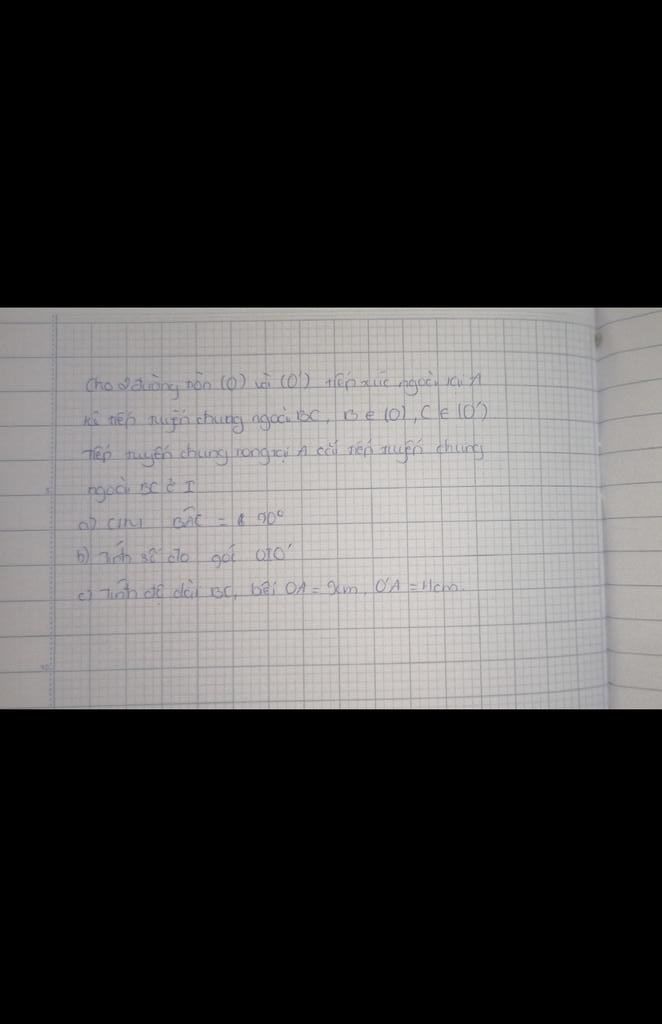 Cho 2 đường tròn (O) và (O') tiếp xúc ngoài tại A
Kẻ tiếp tuyến chung ngoài BC, B ∈ (O), C ∈ (O')
Tiếp tuyến chung trong tại A cắt tiếp tuyến chung
ngoài BC ở I
a) CM BAC = 90°
b) Tính số đo góc OIO'
c) Tính độ dài BC, biết OA = cm, O'A = 4cm.